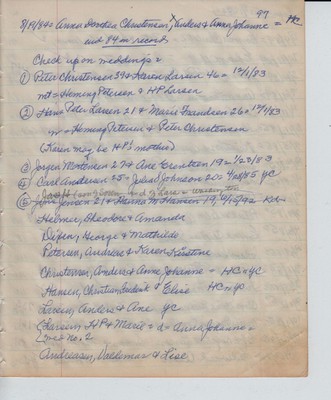 97
8/19/840 Anna Dorothea Christensen, Anders & Anna Johanne = HC
and 84 in record
Check upon weddings =
① Peter Christensen 39 & Karen Larsen 46 = 12/1/83
wt = Heming Petersen & HP Larsen
② Hans Peter Larsen 21 & Marie Frandsen 26 = 12/1/83
w = Heming Petersen & Peter Christensen
(Karen may be HP's mother)
③ Jorgen Mortensen 27 & Ane 19 = 1/23/83
④ Carl Andersen 25 = Julia Johnson 20 = YC
⑤ Jens Jensen 21 & Hanna M Hansen 19
Helmer, Theodore & Amanda
Dixen, George & Mathilde
Petersen, Andreas & Karen Kirstine
Christensen, Anders & Anna Johanne - HC x YC
Hansen, Christian Frederik & Elsie HC x YC
Larsen, Anders & Ane YC
Larsen, HP & Marie = d = Anna Johanne =
met no. 2
Andreasen, Valdemar & Lise